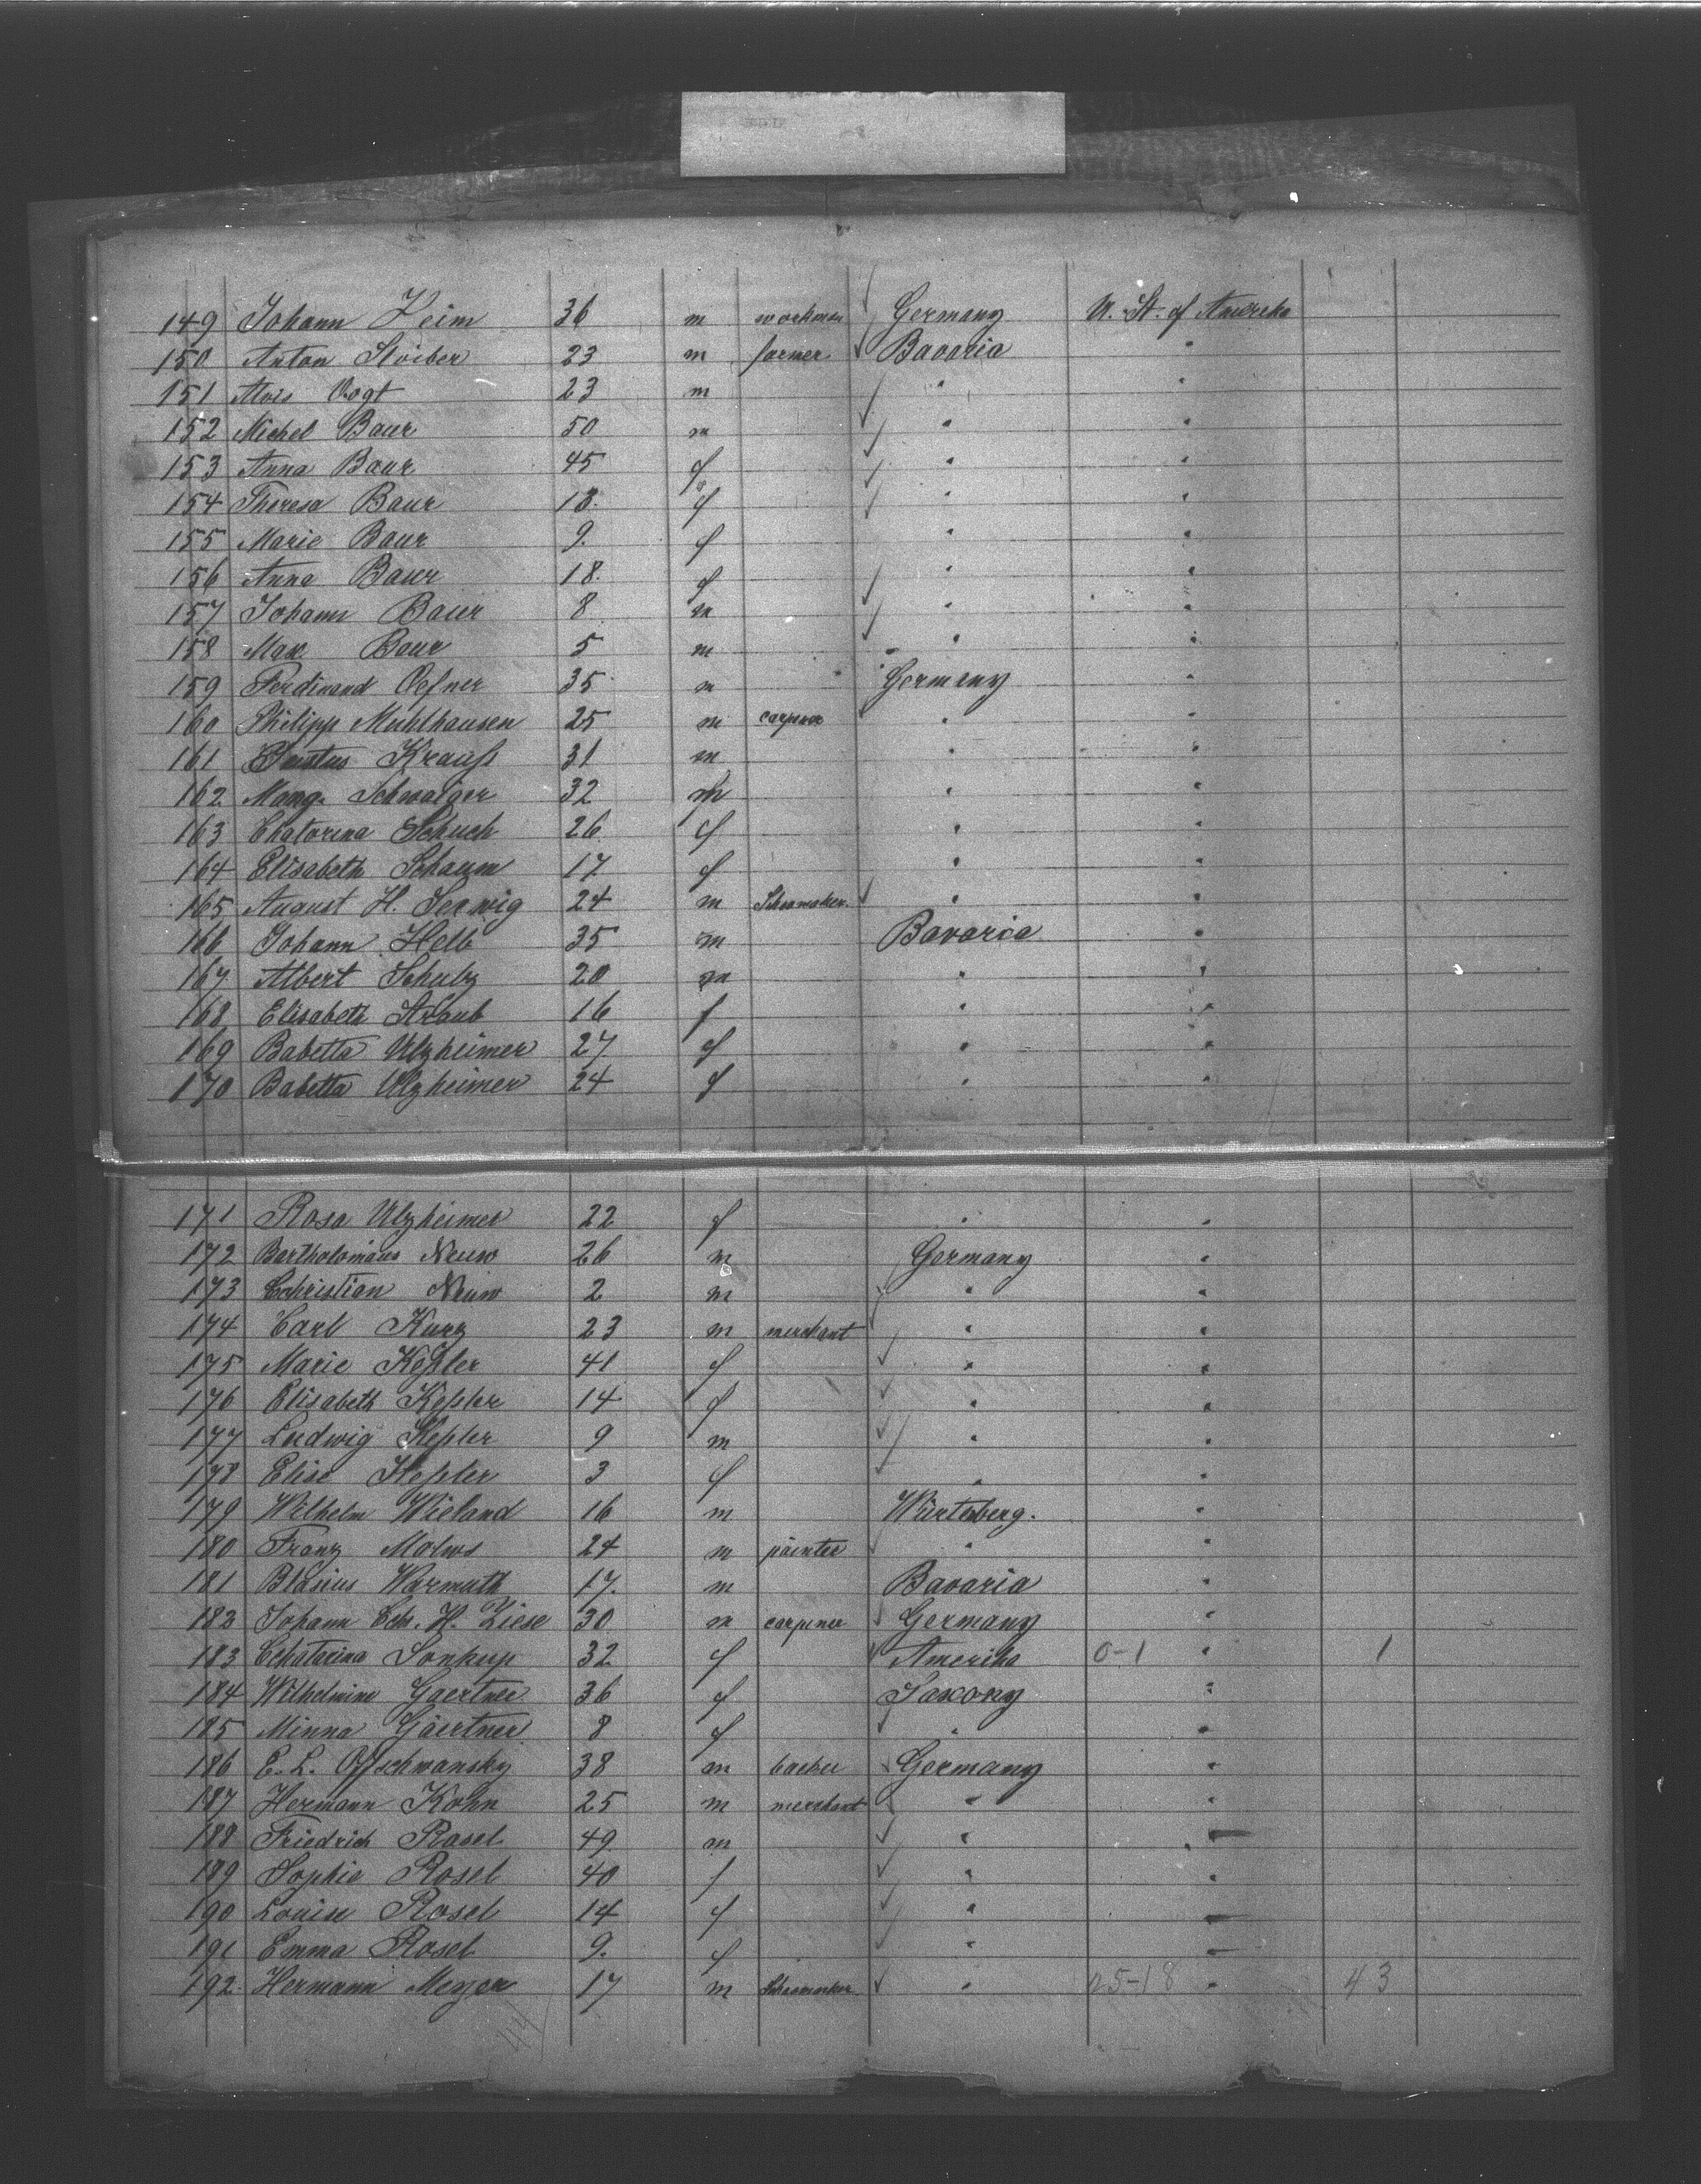 149 Johann Heim 36 m workman Germany U. St. of Amerika
150 Anton Stoiber 23 m farmer Bavaria "
151 Alois Vogt 23 m " "
152 Michel Baur 50 m " "
153 Anna Baur 45 f " "
154 Theresa Baur 18. f " "
155 Marie Baur 9. f " "
156 Anna Baur 18. f " "
157 Johann Baur 8 m " "
158 Max Baur 5 m " "
159 Ferdinand Oefner 35 m Germany "
160 Philipp Muhlhausen 25 m carpener " "
161 Krauß 31 m " "
162 Mang. Schwaiger 32 m " "
163 Chatarina Schuch 26 f " "
164 Elisabeth Schaum 17 f " "
165 August H. Serwig 24 m Schoomaker. " "
166 Johann Helb 35 m Bavaria "
167 Albert Schulz 20 m " "
168 Elisabeth Straub 16 f " "
169 Babetta Ulzheimer 27 f " "
170 Babetta Ulzheimer 24 f " "
171 Rosa Ulzheimer 22 f " "
172 Bartholomäus Neuw 26 m Germany "
173 Cchristian Neuw 2 m " "
174 Carl Kurz 23 m merchant " "
175 Marie Keßler 41 f " "
176 Elisabeth Keßler 14 f " "
177 Ludwig Keßler 9 m " "
178 Elise Keßler 3 f " "
179 Wilhelm Wieland 16 m Würtenberg. "
180 Franz 24 m painter " "
181 Blasius Warmuth 17. m Bavaria "
182 Johann Cchr. H. Ziese 30 m carpener Germany "
183 Cchatarina Sonkup 32 f Amerika 0-1 " 1
184 Wilhelmine Gaertner 36 f Saxony "
185 Minna Gäertner 8 f " "
186 E. L. Offschwansky 38 m backer Germany "
187 Hermann Kohn 25 m merchant " "
188 Friedrich Rasel 49 m " "
189 Sophie Rosel 40 f " "
190 Louise Rosel 14 f " "
191 Emma Rosel 9. f " "
192. Hermann Meyer 17 m Schoomaker " 25-18 " 43
44